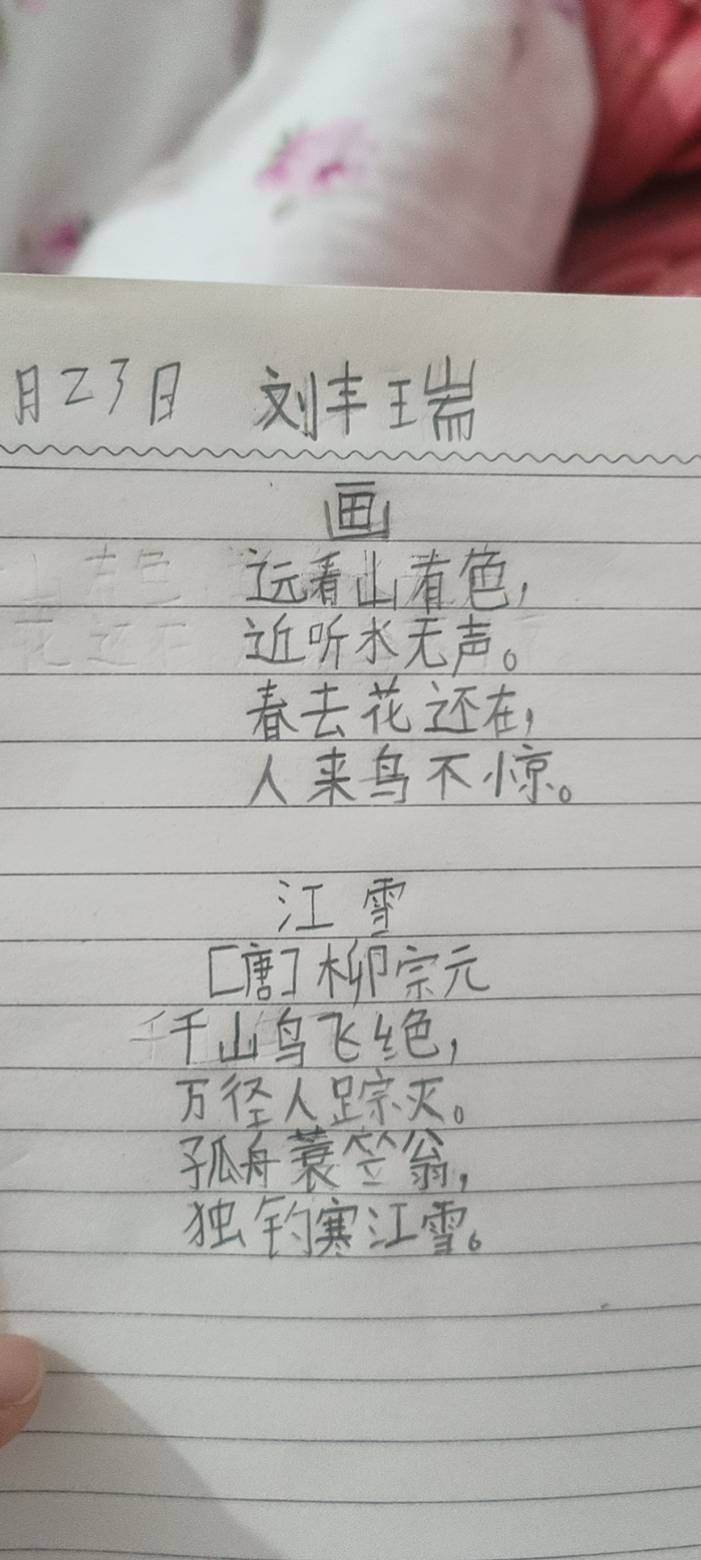 月23日 刘丰瑞
画
远看山有色，
近听水无声。
春去花还在，
人来鸟不惊。
江雪
[唐]柳宗元
千山鸟飞绝，
万径人踪灭。
孤舟蓑笠翁，
独钓寒江雪。